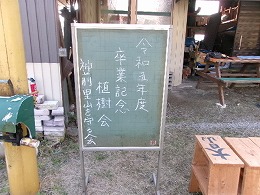 令和五年度
卒業記念
植樹会
神前里山を守る会